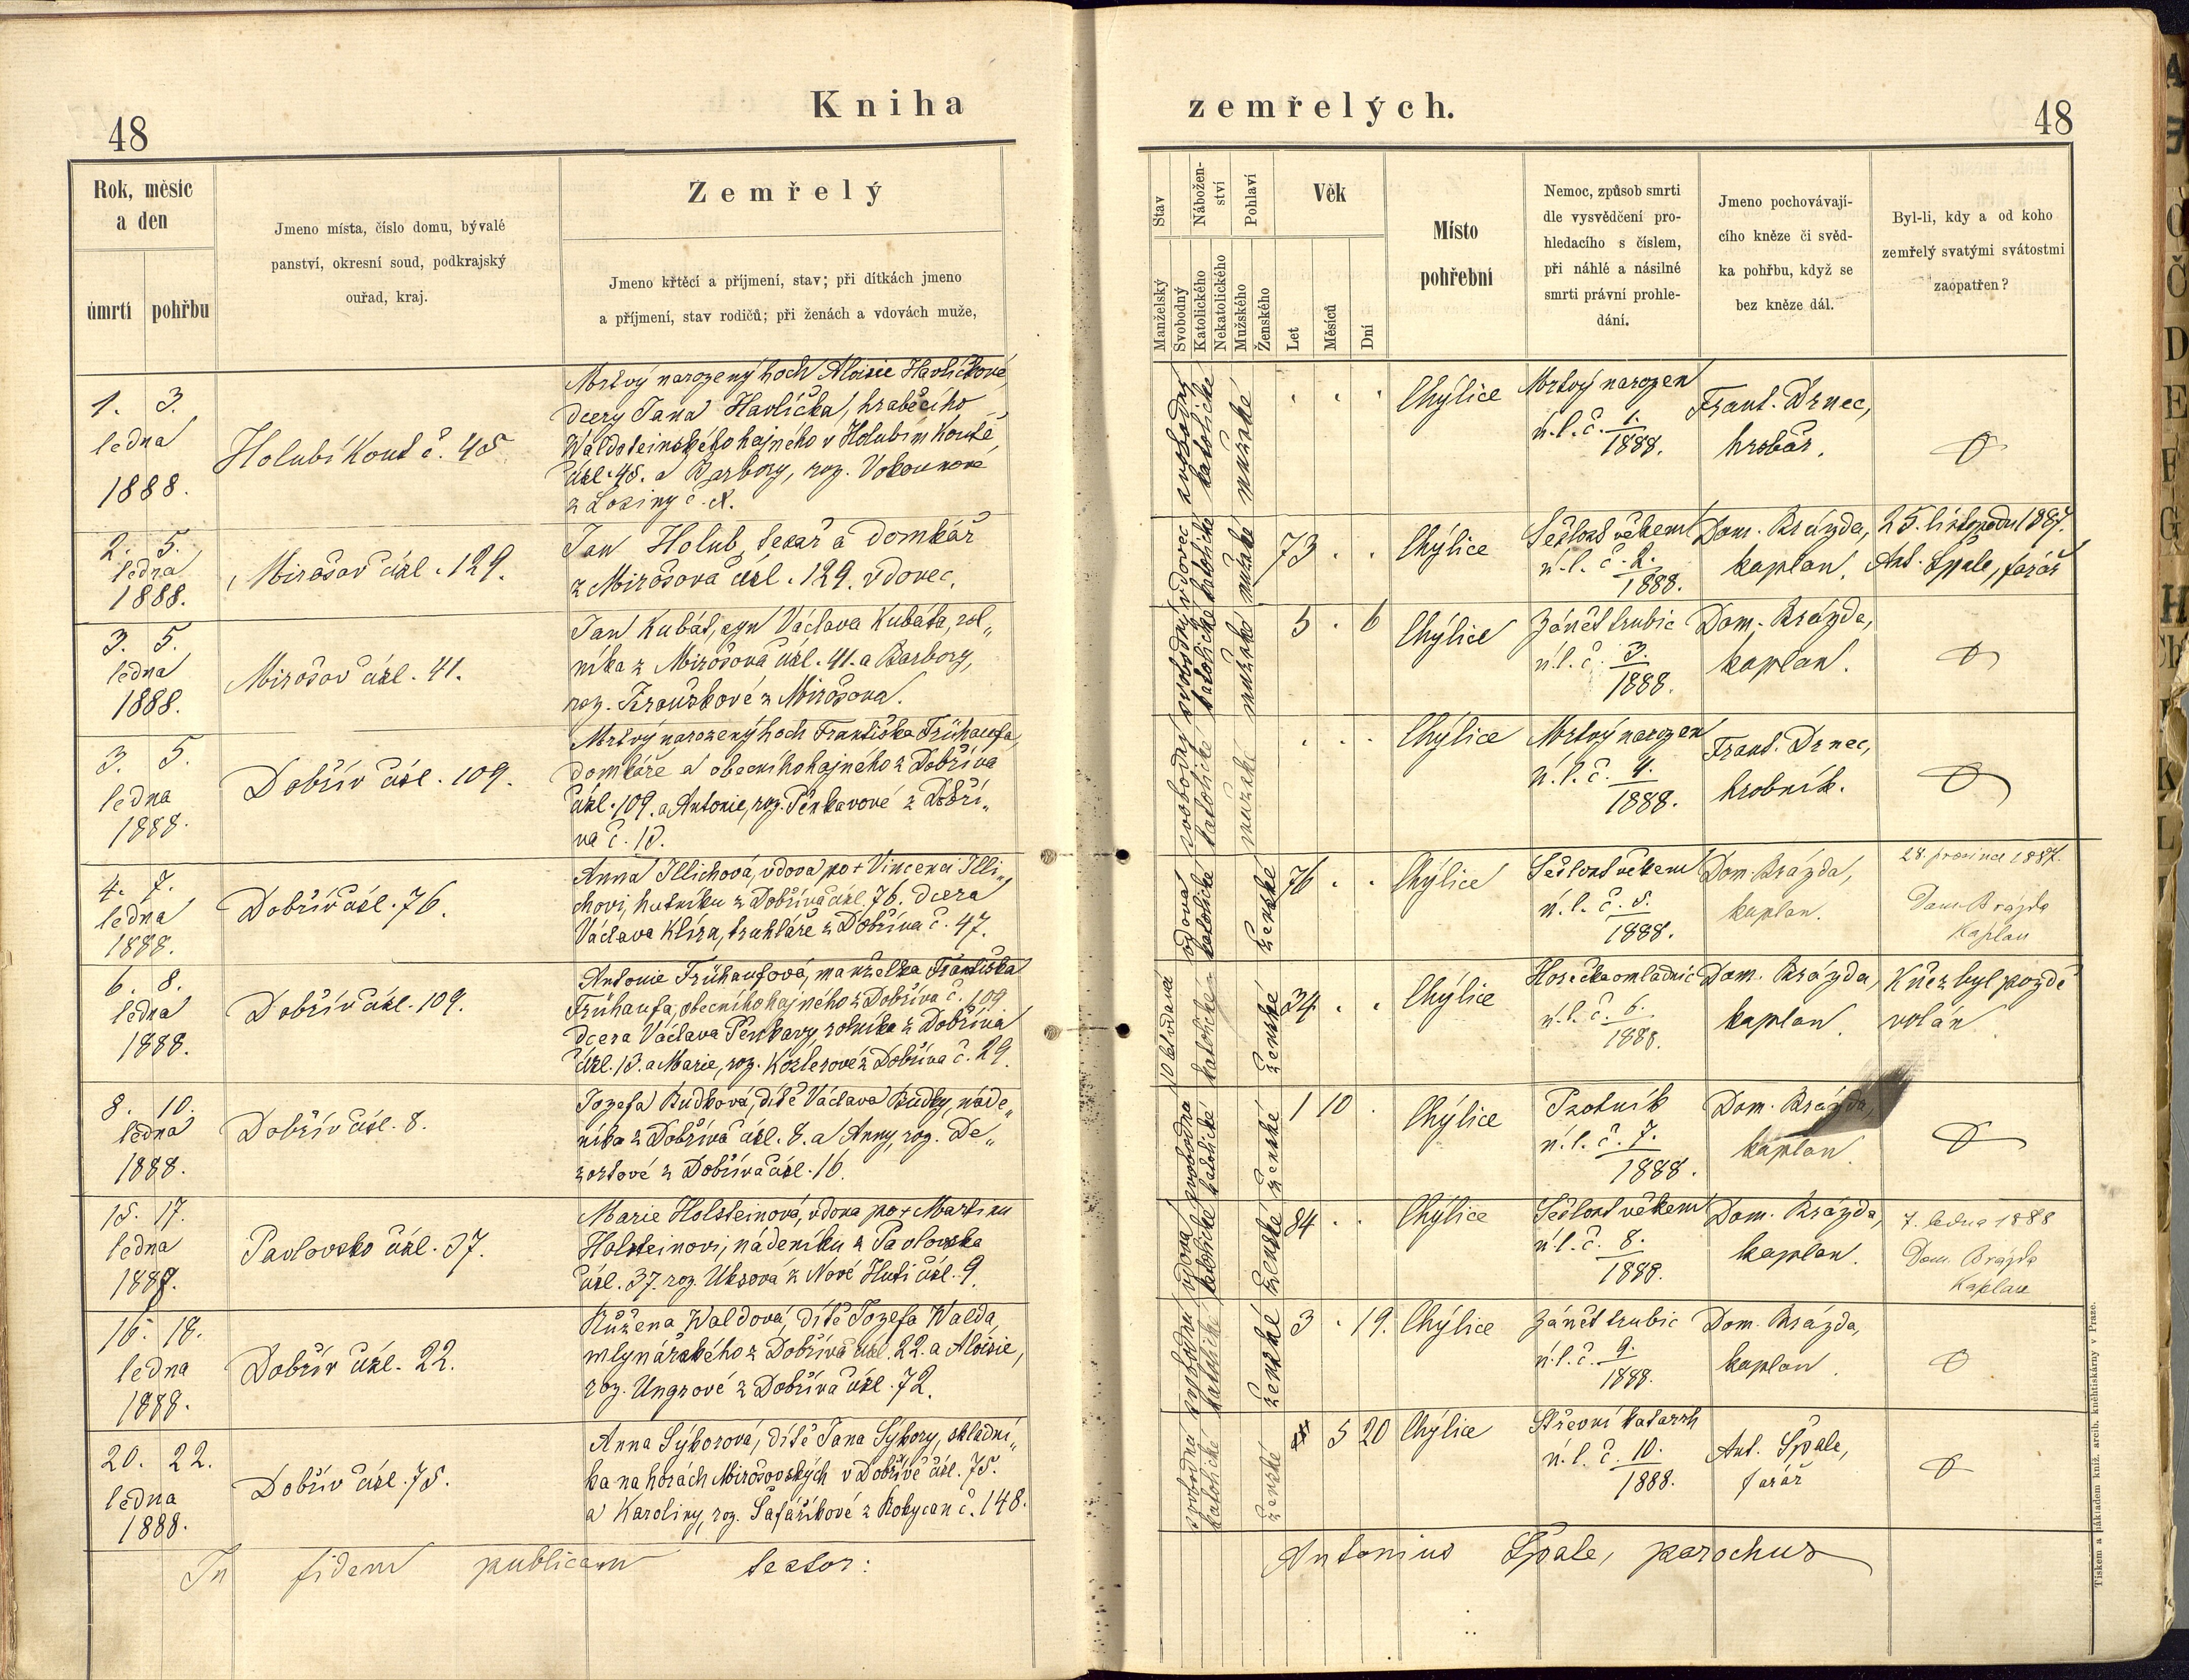 Kniha
zemřelých.
48
48
Rok, měsíc
a den
úmrtí
pohřbu
Jmeno místa, číslo domu, bývalé
panství, okresní soud, podkrajský
ouřad, kraj.
Zemřelý
Jmeno křtěcí a příjmení, stav; při dítkách jmeno
a příjmení, stav rodičů; při ženách a vdovách muže,
Stav
Manželský
Svobodný
Nábožen-
ství
Katolického
Nekatolického
Pohlaví
Mužského
Ženského
Věk
Let
Měsíců
Dní
Místo
pohřební
Nemoc, způsob smrti
dle vysvědčení pro-
hledacího s číslem,
při náhlé a násilné
smrti právní prohle-
dání.
Jmeno pochovávají-
cího kněze či svěd-
ka pohřbu, když se
bez kněze dál.
Byl-li, kdy a od koho
zemřelý svatými svátostmi
zaopatřen?
1. 3.
ledna
1888.
Holubí Kout č. 45
Mrtvý narozený hoch Aloisie Havlíčkové,
dcery Jana Havlíčka, hraběcího
Waldsteinského hajného v Holubím Koutě,
čísl. 45. a Barbory, roz. Vokounové
svobodný
katolické
mužské
. . .
Chýlice
Mrtvý narozen
n.l.č. 1.
1888.
Frant. Drnec,
hrobař.
2. 5.
ledna
1888.
Mirošov čísl. 129.
Jan Holub, tesař a domkář
z Mirošova čísl. 129. vdovec.
vdovec
katolické
mužské
73 . .
Chýlice
Sešlost věkem
n.l.č. 2.
1888.
Dom. Brázda,
kaplan.
25. listopadu 1887.
Ant. Špale, farář
3. 5.
ledna
1888.
Mirošov čísl. 41.
Jan Kubát, syn Václava Kubáta, rol„
níka z Mirošova čísl. 41. a Barbory,
roz. Krouskové z Mirošova.
svobodný
katolické
mužské
5 . 6
Chýlice
Zánět trubic
n.l.č. 3.
1888.
Dom. Brázda,
kaplan.
3. 5.
ledna
1888.
Dobřív čísl. 109.
Mrtvý narozený hoch Františka Frühaufa,
domkáře a obecního hajného z Dobříva
čísl. 109. a Antonie, roz. Pěnkavové z Dobří„
va č. 13.
svobodný
katolické
mužské
. . .
Chýlice
Mrtvý narozen
n.l.č. 4.
1888.
Frant. Drnec,
hrobník.
4. 7.
ledna
1888.
Dobřív čísl. 76.
Anna Illichová, vdova po + Vincenci Illi„
chovi, hutníku z Dobříva čísl. 76. dcera
Václava Klíra, truhláře z Dobříva č. 47.
vdova
katolické
ženské
76 . .
Chýlice
Sešlost věkem
n.l.č. 5.
1888.
Dom. Brázda,
kaplan.
28. prosince 1887.
Dom. Brázda
kaplan
6. 8.
ledna
1888.
Dobřív čísl. 109.
Antonie Frühaufová, manželka Františka
Frühaufa, obecního hajného z Dobříva č. 109
dcera Václava Pěnkavy, rolníka z Dobříva
čísl. 13. a Marie, roz. Kozlerové z Dobříva č. 29.
10 let vdaná
katolické
ženské
34 . .
Chýlice
Horečka omladnic
n.l.č. 6.
1888.
Dom. Brázda,
kaplan.
Kněz byl pozdě
volán
8. 10.
ledna
1888.
Dobřív čísl. 8.
Josefa Budková, dítě Václava Budky, náde„
níka z Dobříva čísl. 8. a Anny, roz. De„
zortové z Dobříva čísl. 16.
svobodná
katolické
ženské
1 10 .
Chýlice
Psotník
n.l.č. 7.
1888.
Dom. Brázda,
kaplan.
15. 17.
ledna
1888.
Pavlovsko čísl. 37.
Marie Holsteinová, vdova po + Martinu
Holsteinovi, nádeníku z Pavlovska
čísl. 37. roz. Uksová z Nové Huti čísl. 9.
vdova
katolické
ženské
84 . .
Chýlice
Sešlost věkem
n.l.č. 8.
1888.
Dom. Brázda,
kaplan.
7. ledna 1888
Dom. Brázda
Kaplan
16. 18.
ledna
1888.
Dobřív čísl. 22.
Růžena Waldová, dítě Josefa Walda,
mlynářského z Dobříva čísl. 22. a Aloisie,
roz. Ungrové z Dobříva čísl. 72.
svobodná
katolické
ženské
3 . 19.
Chýlice
Zánět trubic
n.l.č. 9.
1888.
Dom. Brázda,
kaplan.
20. 22.
ledna
1888.
Dobřív čísl. 75.
Anna Sýkorová, dítě Jana Sýkory, skladní„
ka na horách Mirošovských v Dobřívě čísl. 75.
a Karoliny, roz. Šafaříkové z Rokycan č. 148.
svobodná
katolické
ženské
5 20
Chýlice
Střevní katarrh
n.l.č. 10.
1888.
Ant. Špale,
farář
In fidem publicam testor:
Antonius Špale, parochus
Tiskem a nákladem kníž. arcib. knihtiskárny v Praze.